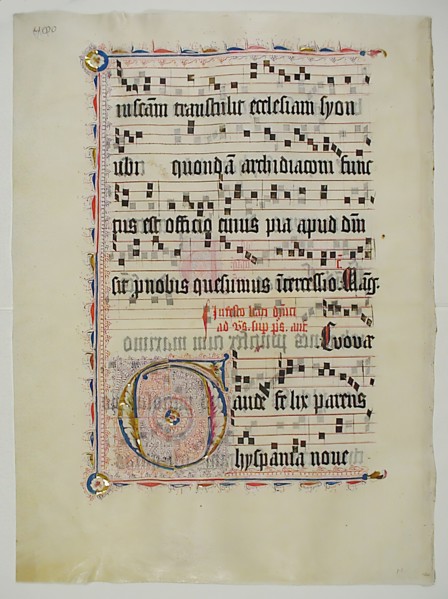 iuscam transtulit ecclesiam syon
ubi quondā archidiaconi func
tus est officio cuius pia apud dm̄
sit p nobis quesumus ītercessio. Māg.
In festo sc̄i dn̄ici
ad vs̄. sup ps̄. anē
Evovæ
Gaude felix parens
hyspania nove